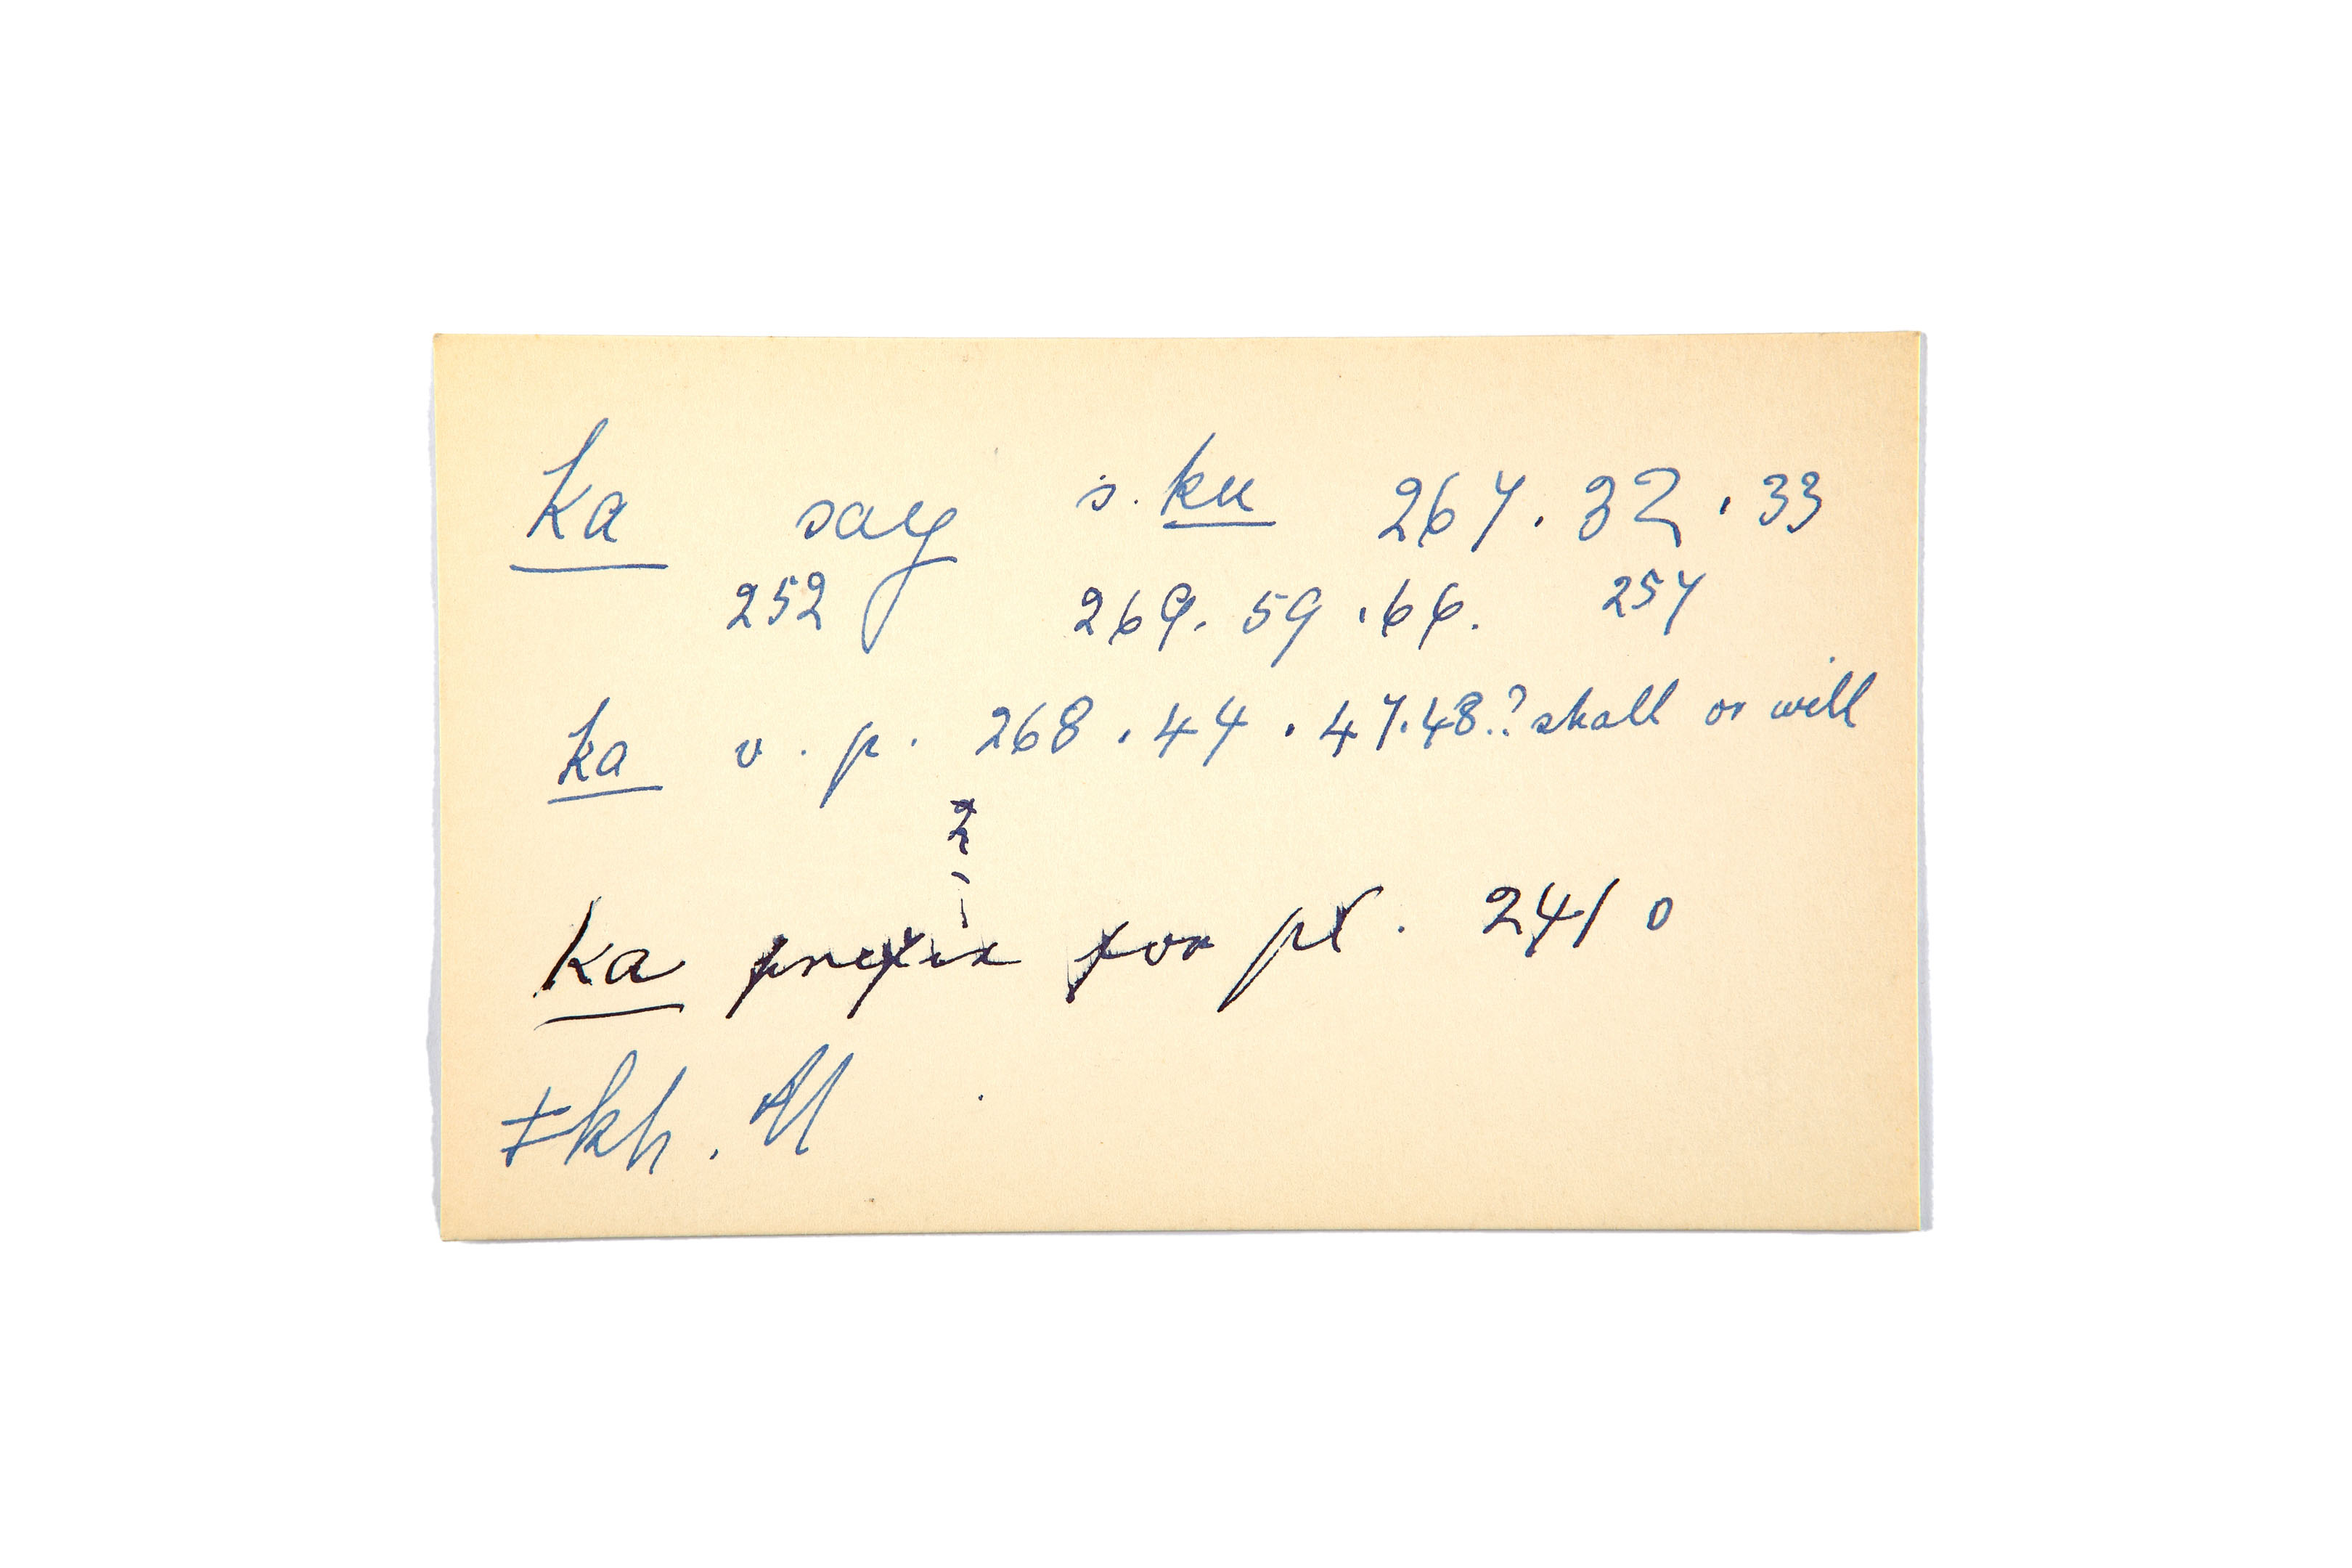 ka say s. ku 267. 32. 33
252 269. 59. 66. 257
ka v. p. 268. 44. 47. 48.? shall or will
2
ka prefix for pl. 241 o
ǂkh.